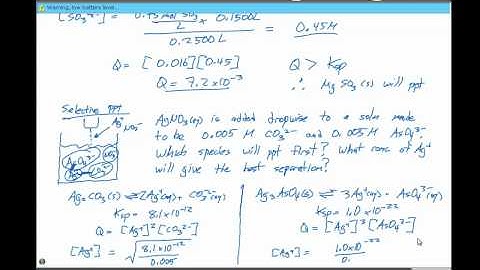 Warning, low battery level...
[SO₃²⁻] = 0.75 mol SO₃ / L × 0.1500L / 0.2500 L = 0.45M
Q = [0.016][0.45]
Q = 7.2 × 10⁻³
Q > Ksp
∴ MgSO₃(s) will ppt
Selective PPT
Ag⁺
NO₃⁻
AsO₄³⁻
CO₃²⁻
AgNO₃(aq) is added dropwise to a soln made
to be 0.005 M CO₃²⁻ and 0.005M AsO₄³⁻
which species will ppt first? What conc of Ag⁺
will give the best separation?
Ag₂CO₃(s) ⇌ 2Ag⁺(aq) + CO₃²⁻(aq)
Ksp = 8.1 × 10⁻¹²
Q = [Ag⁺]²[CO₃²⁻]
[Ag⁺] = √(8.1 × 10⁻¹² / 0.005)
Ag₃AsO₄(s) ⇌ 3Ag⁺(aq) + AsO₄³⁻(aq)
Ksp = 1.0 × 10⁻²²
Q = [Ag⁺]³[AsO₄³⁻]
[Ag⁺] = 1.0 × 10⁻²² / 0.